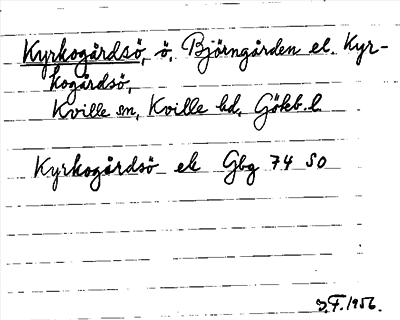 Kyrkogårdsö, ö, Björngården el. Kyr-
kogårdsö,
Kville sn, Kville hd, Göteb. l.
Kyrkogårdsö ek Gbg 74 SO
J.F. 1956.